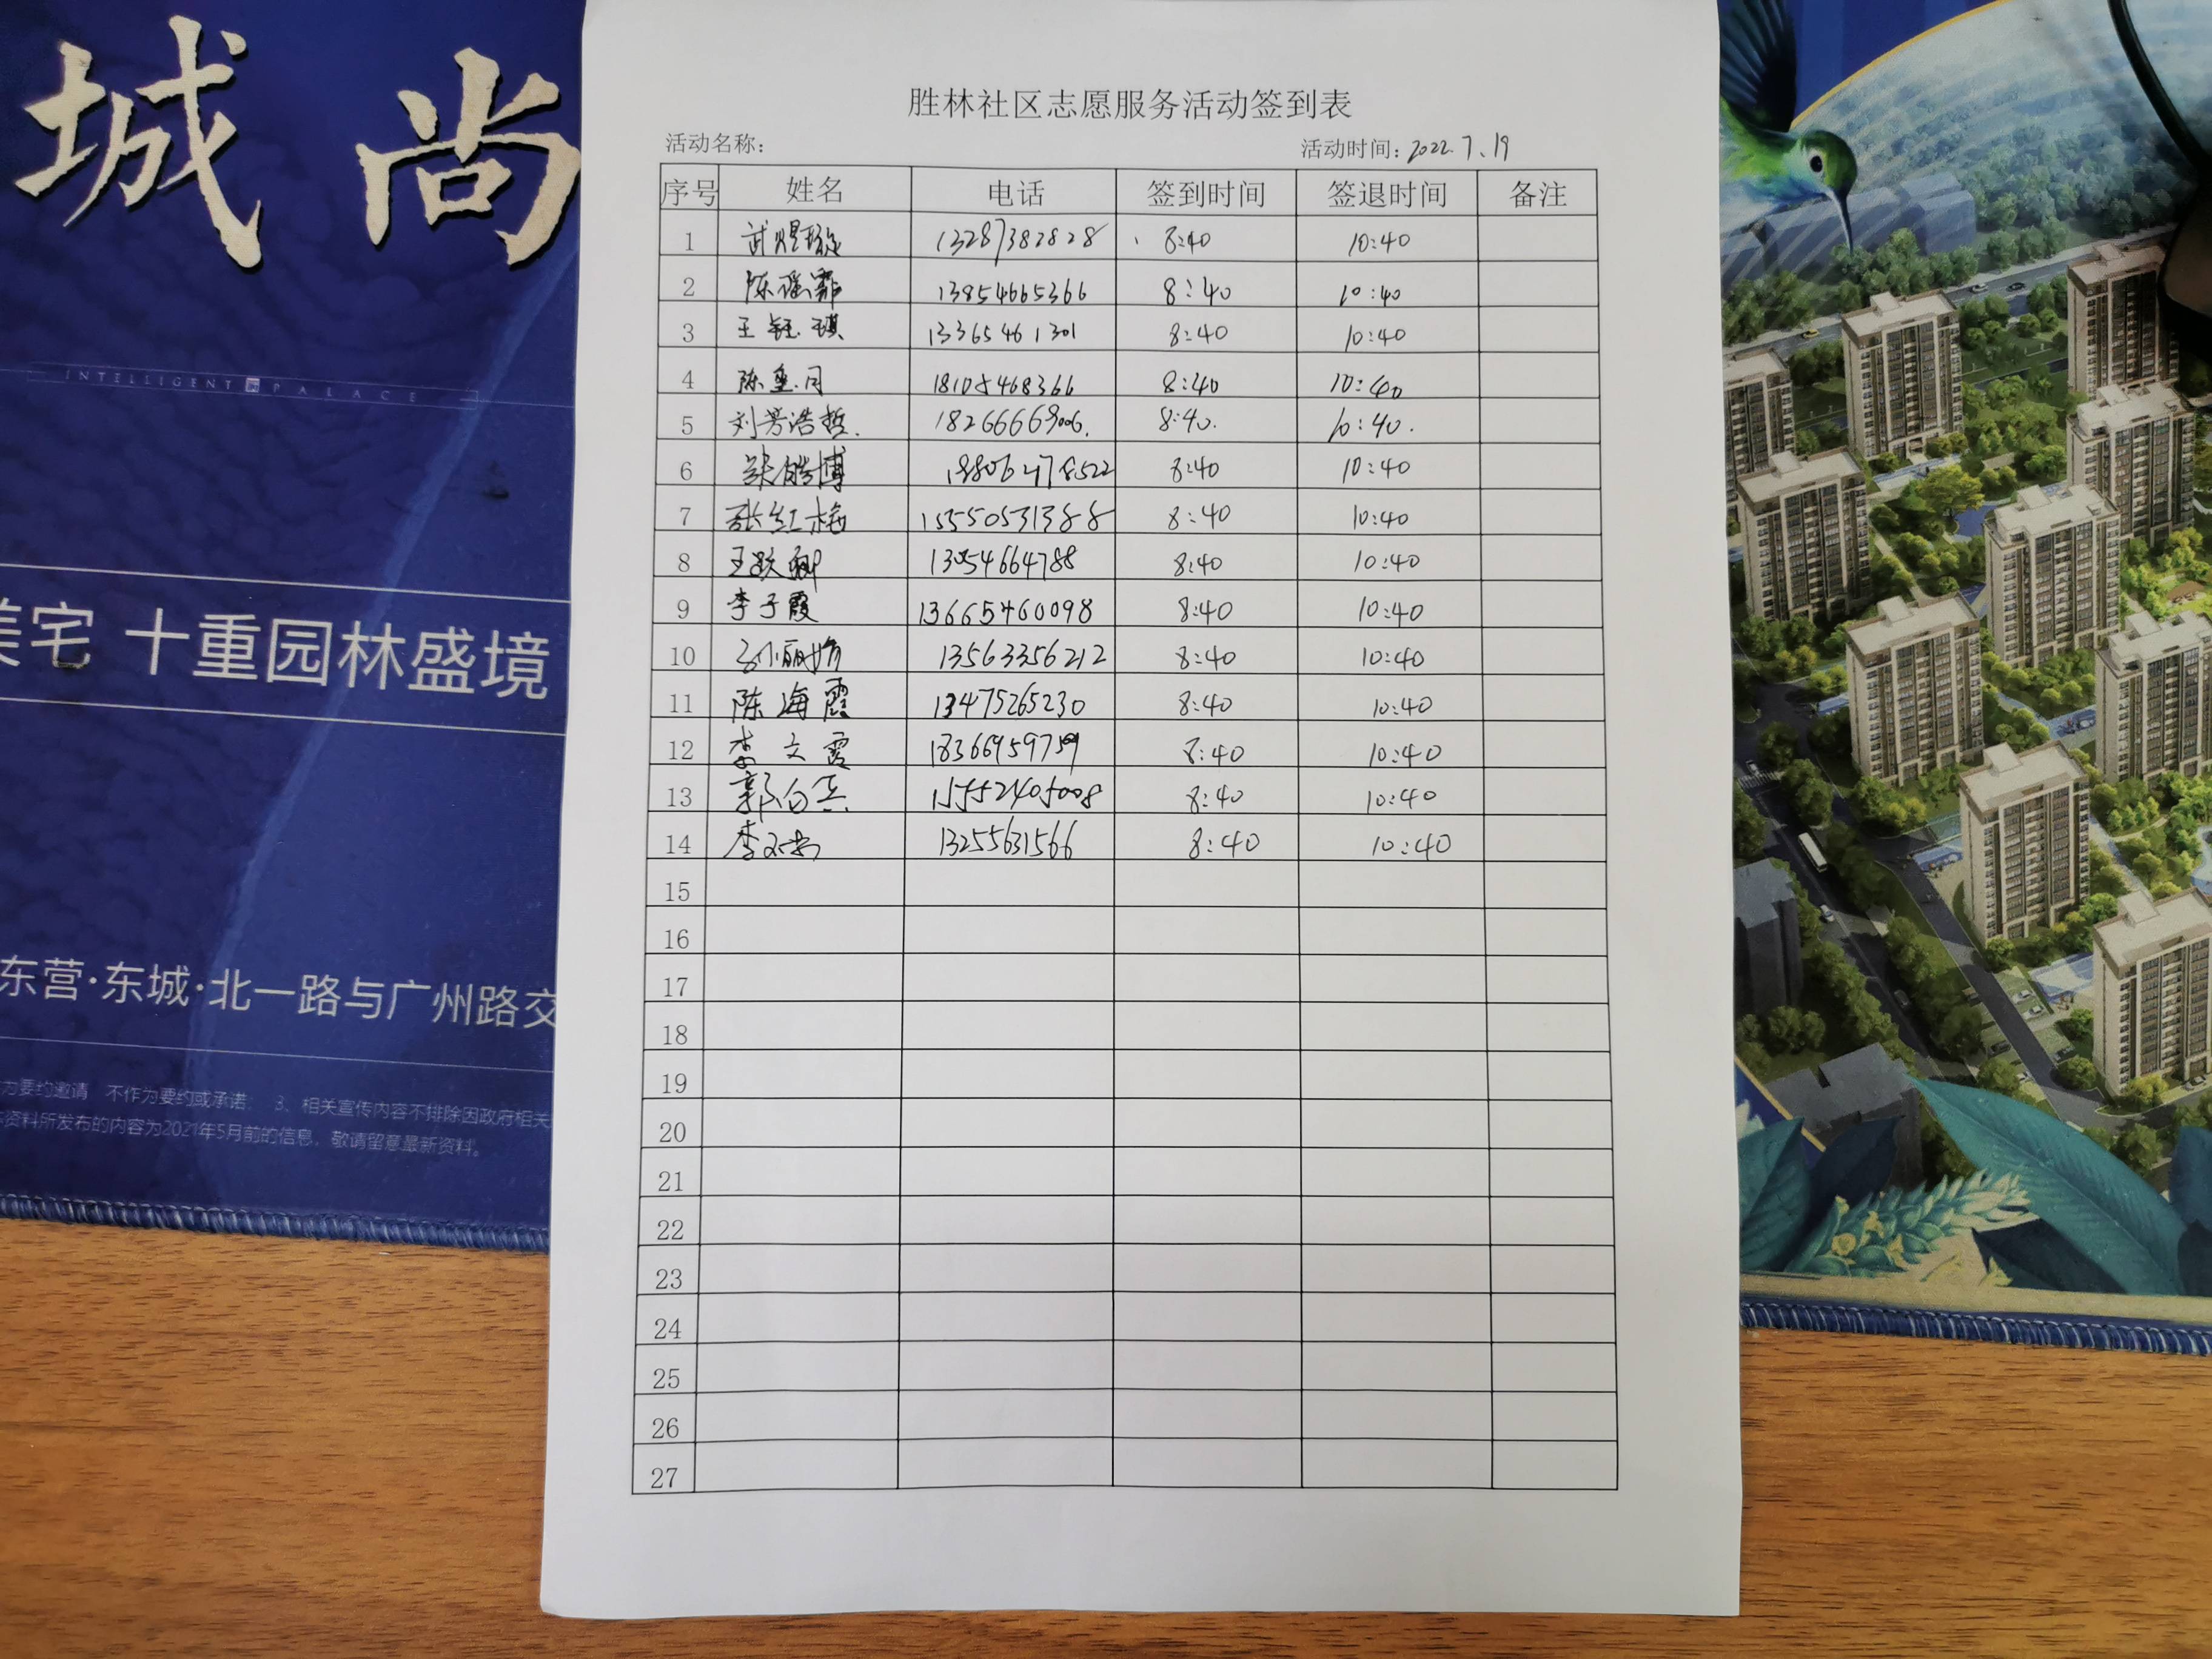 城 尚
INTELLIGENT PALACE
美宅 十重园林盛境
东营·东城·北一路与广州路交
为要约邀请 不作为要约或承诺; 3、相关宣传内容不排除因政府相关
资料所发布的内容为2021年5月前的信息,敬请留意最新资料。
胜林社区志愿服务活动签到表
活动名称: 活动时间: 2022.7.19
序号 姓名 电话 签到时间 签退时间 备注
1 武煜璇 13287382828 8:40 10:40
2 陈瑶霏 13854665366 8:40 10:40
3 王钰琪 13365461301 8:40 10:40
4 陈 月 18105468366 8:40 10:40
5 刘芳浩哲. 18266669006. 8:40. 10:40.
6 张皓博 18806478522 8:40 10:40
7 张红梅 15550531388 8:40 10:40
8 王 13054664788 8:40 10:40
9 李子霞 13665460098 8:40 10:40
10 孙丽娇 13563356212 8:40 10:40
11 陈海霞 13475265230 8:40 10:40
12 李文霞 18366959759 8:40 10:40
13 郭 15552405008 8:40 10:40
14 李 13255631566 8:40 10:40
15
16
17
18
19
20
21
22
23
24
25
26
27